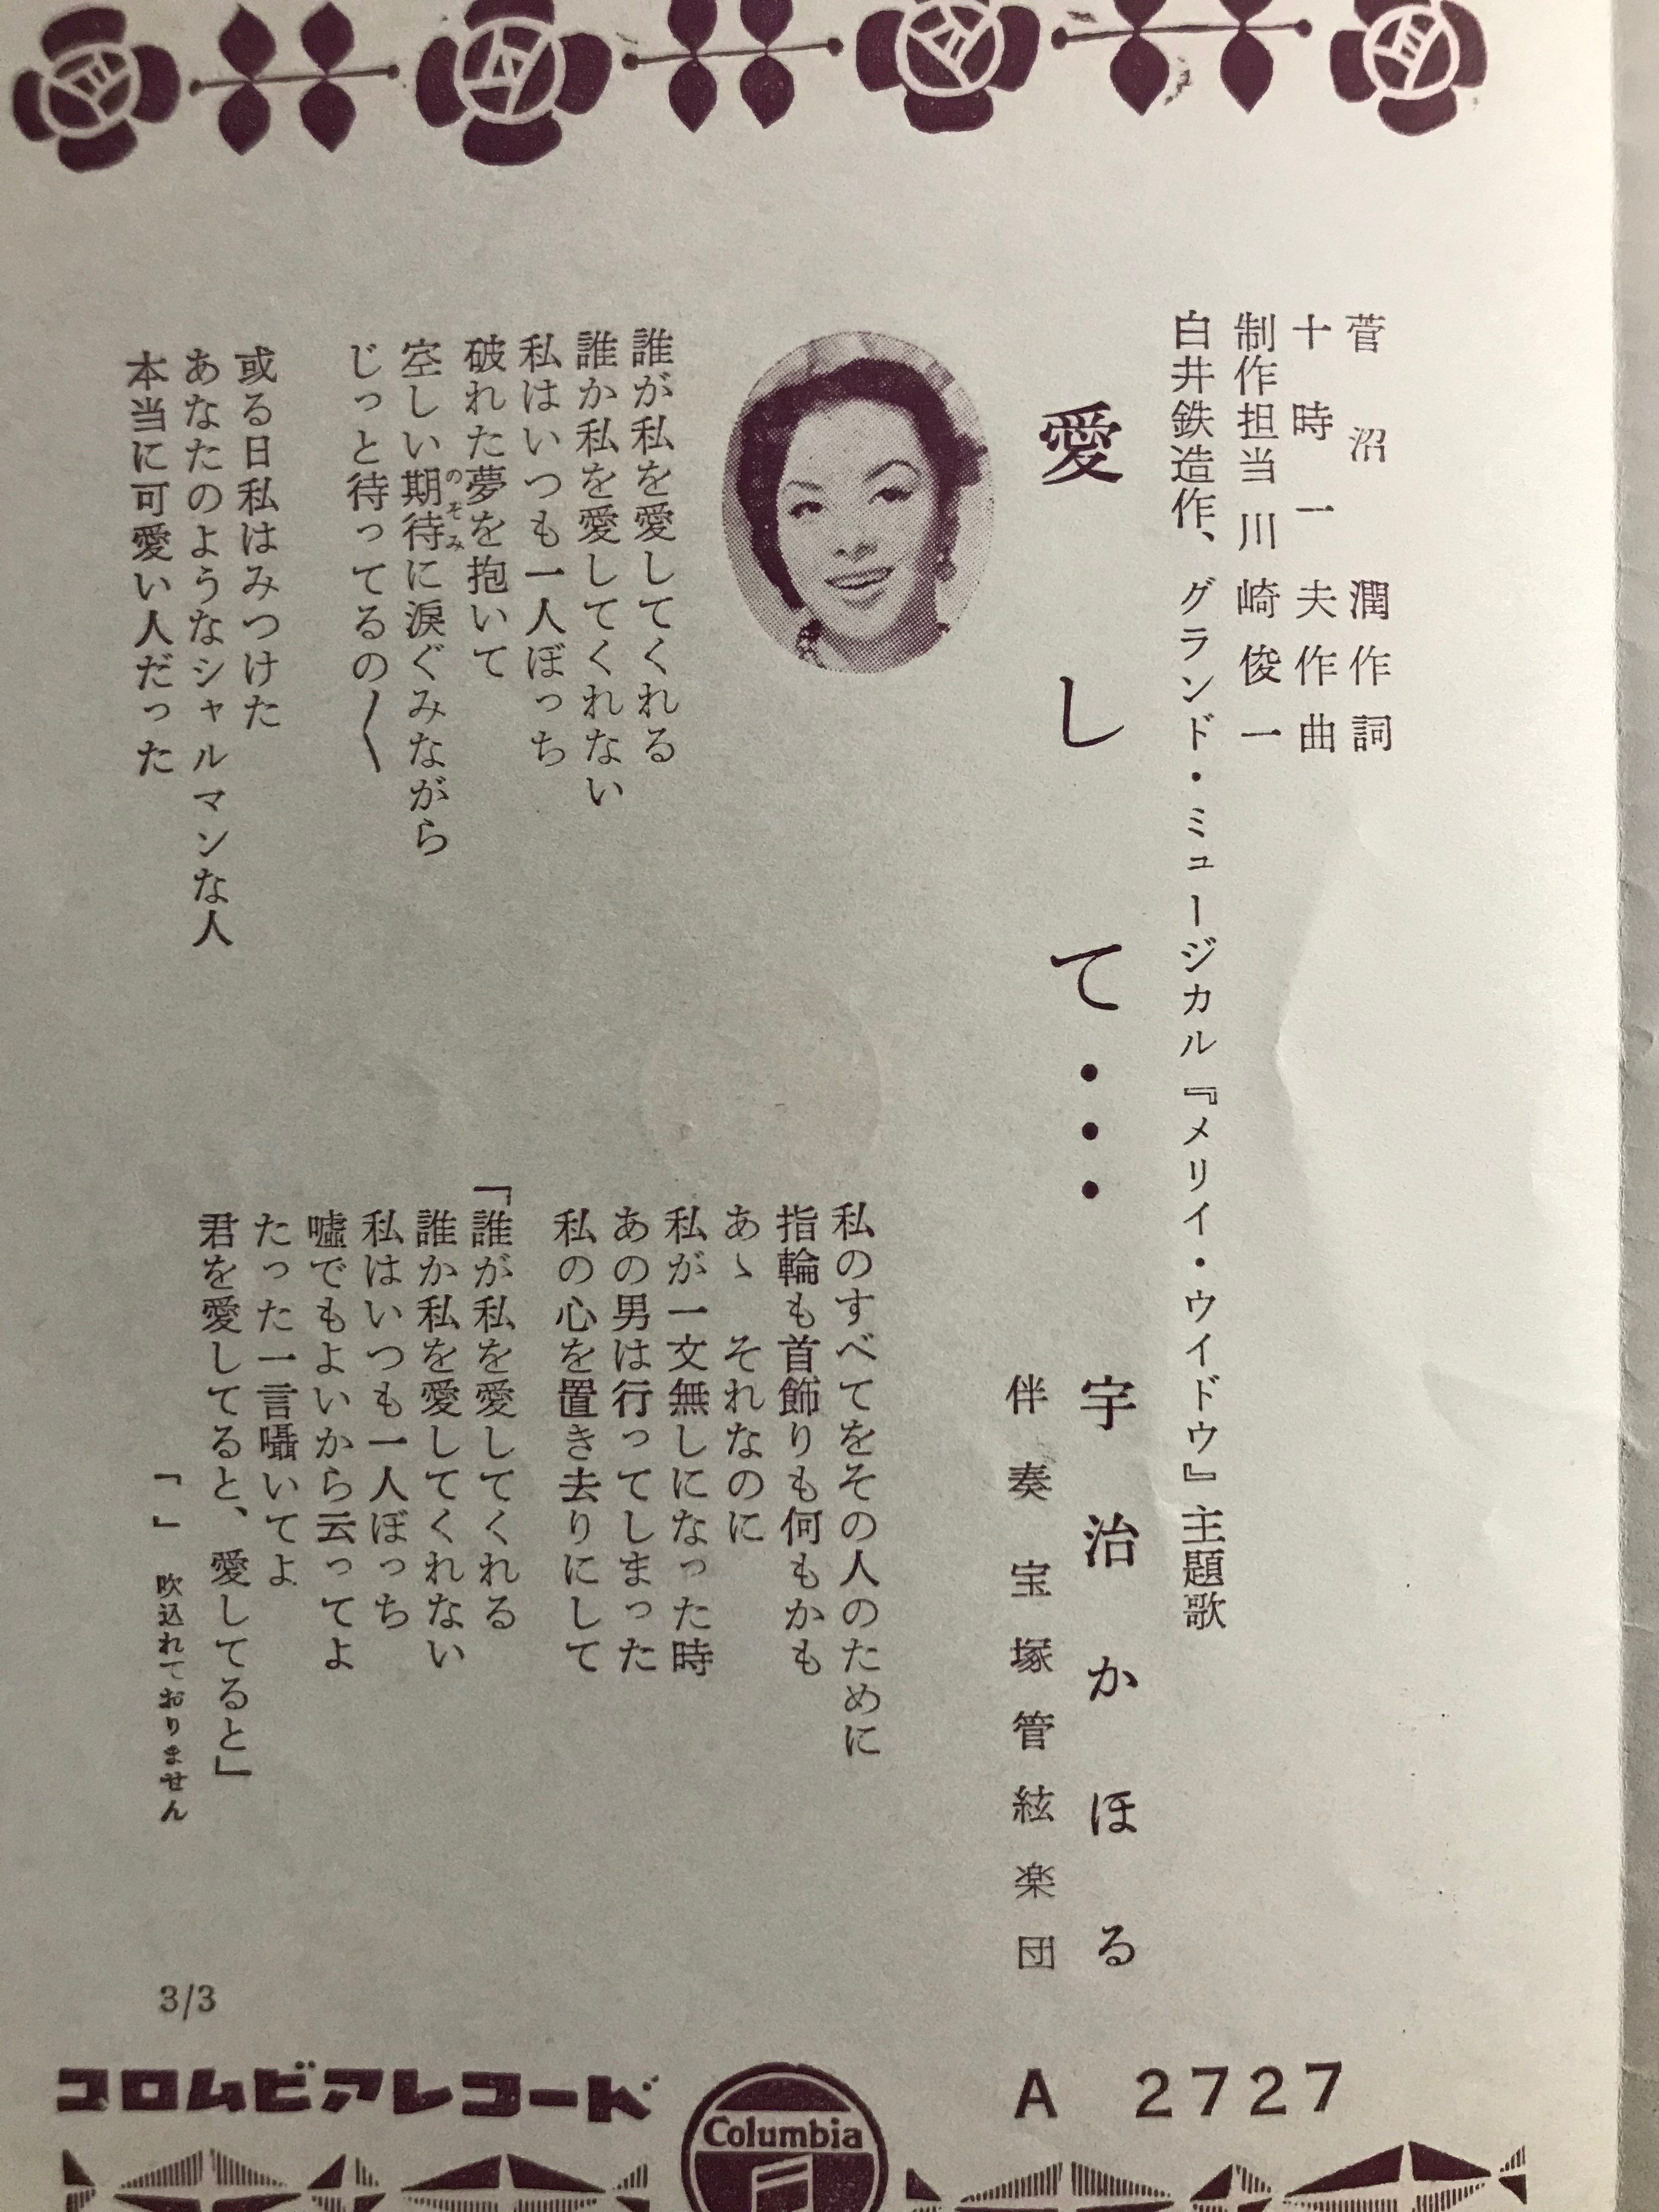 菅沼潤作詞
十時一夫作曲
制作担当 川崎俊一
白井鉄造作、グランド・ミュージカル『メリイ・ウイドウ』主題歌
愛して・・・
宇治かほる
伴奏 宝塚管絃楽団
誰が私を愛してくれる
誰か私を愛してくれない
私はいつも一人ぼっち
破れた夢を抱いて
空しい期待に涙ぐみながら
のぞみ
じっと待ってるの〳〵
或る日私はみつけた
あなたのようなシャルマンな人
本当に可愛い人だった
私のすべてをその人のために
指輪も首飾りも何もかも
あゝ それなのに
私が一文無しになった時
あの男は行ってしまった
私の心を置き去りにして
「誰が私を愛してくれる
誰か私を愛してくれない
私はいつも一人ぼっち
嘘でもよいから云ってよ
たった一言囁いてよ
君を愛してると、愛してると」
「 」 吹込れておりません
3/3
コロムビアレコード
Columbia
A 2727